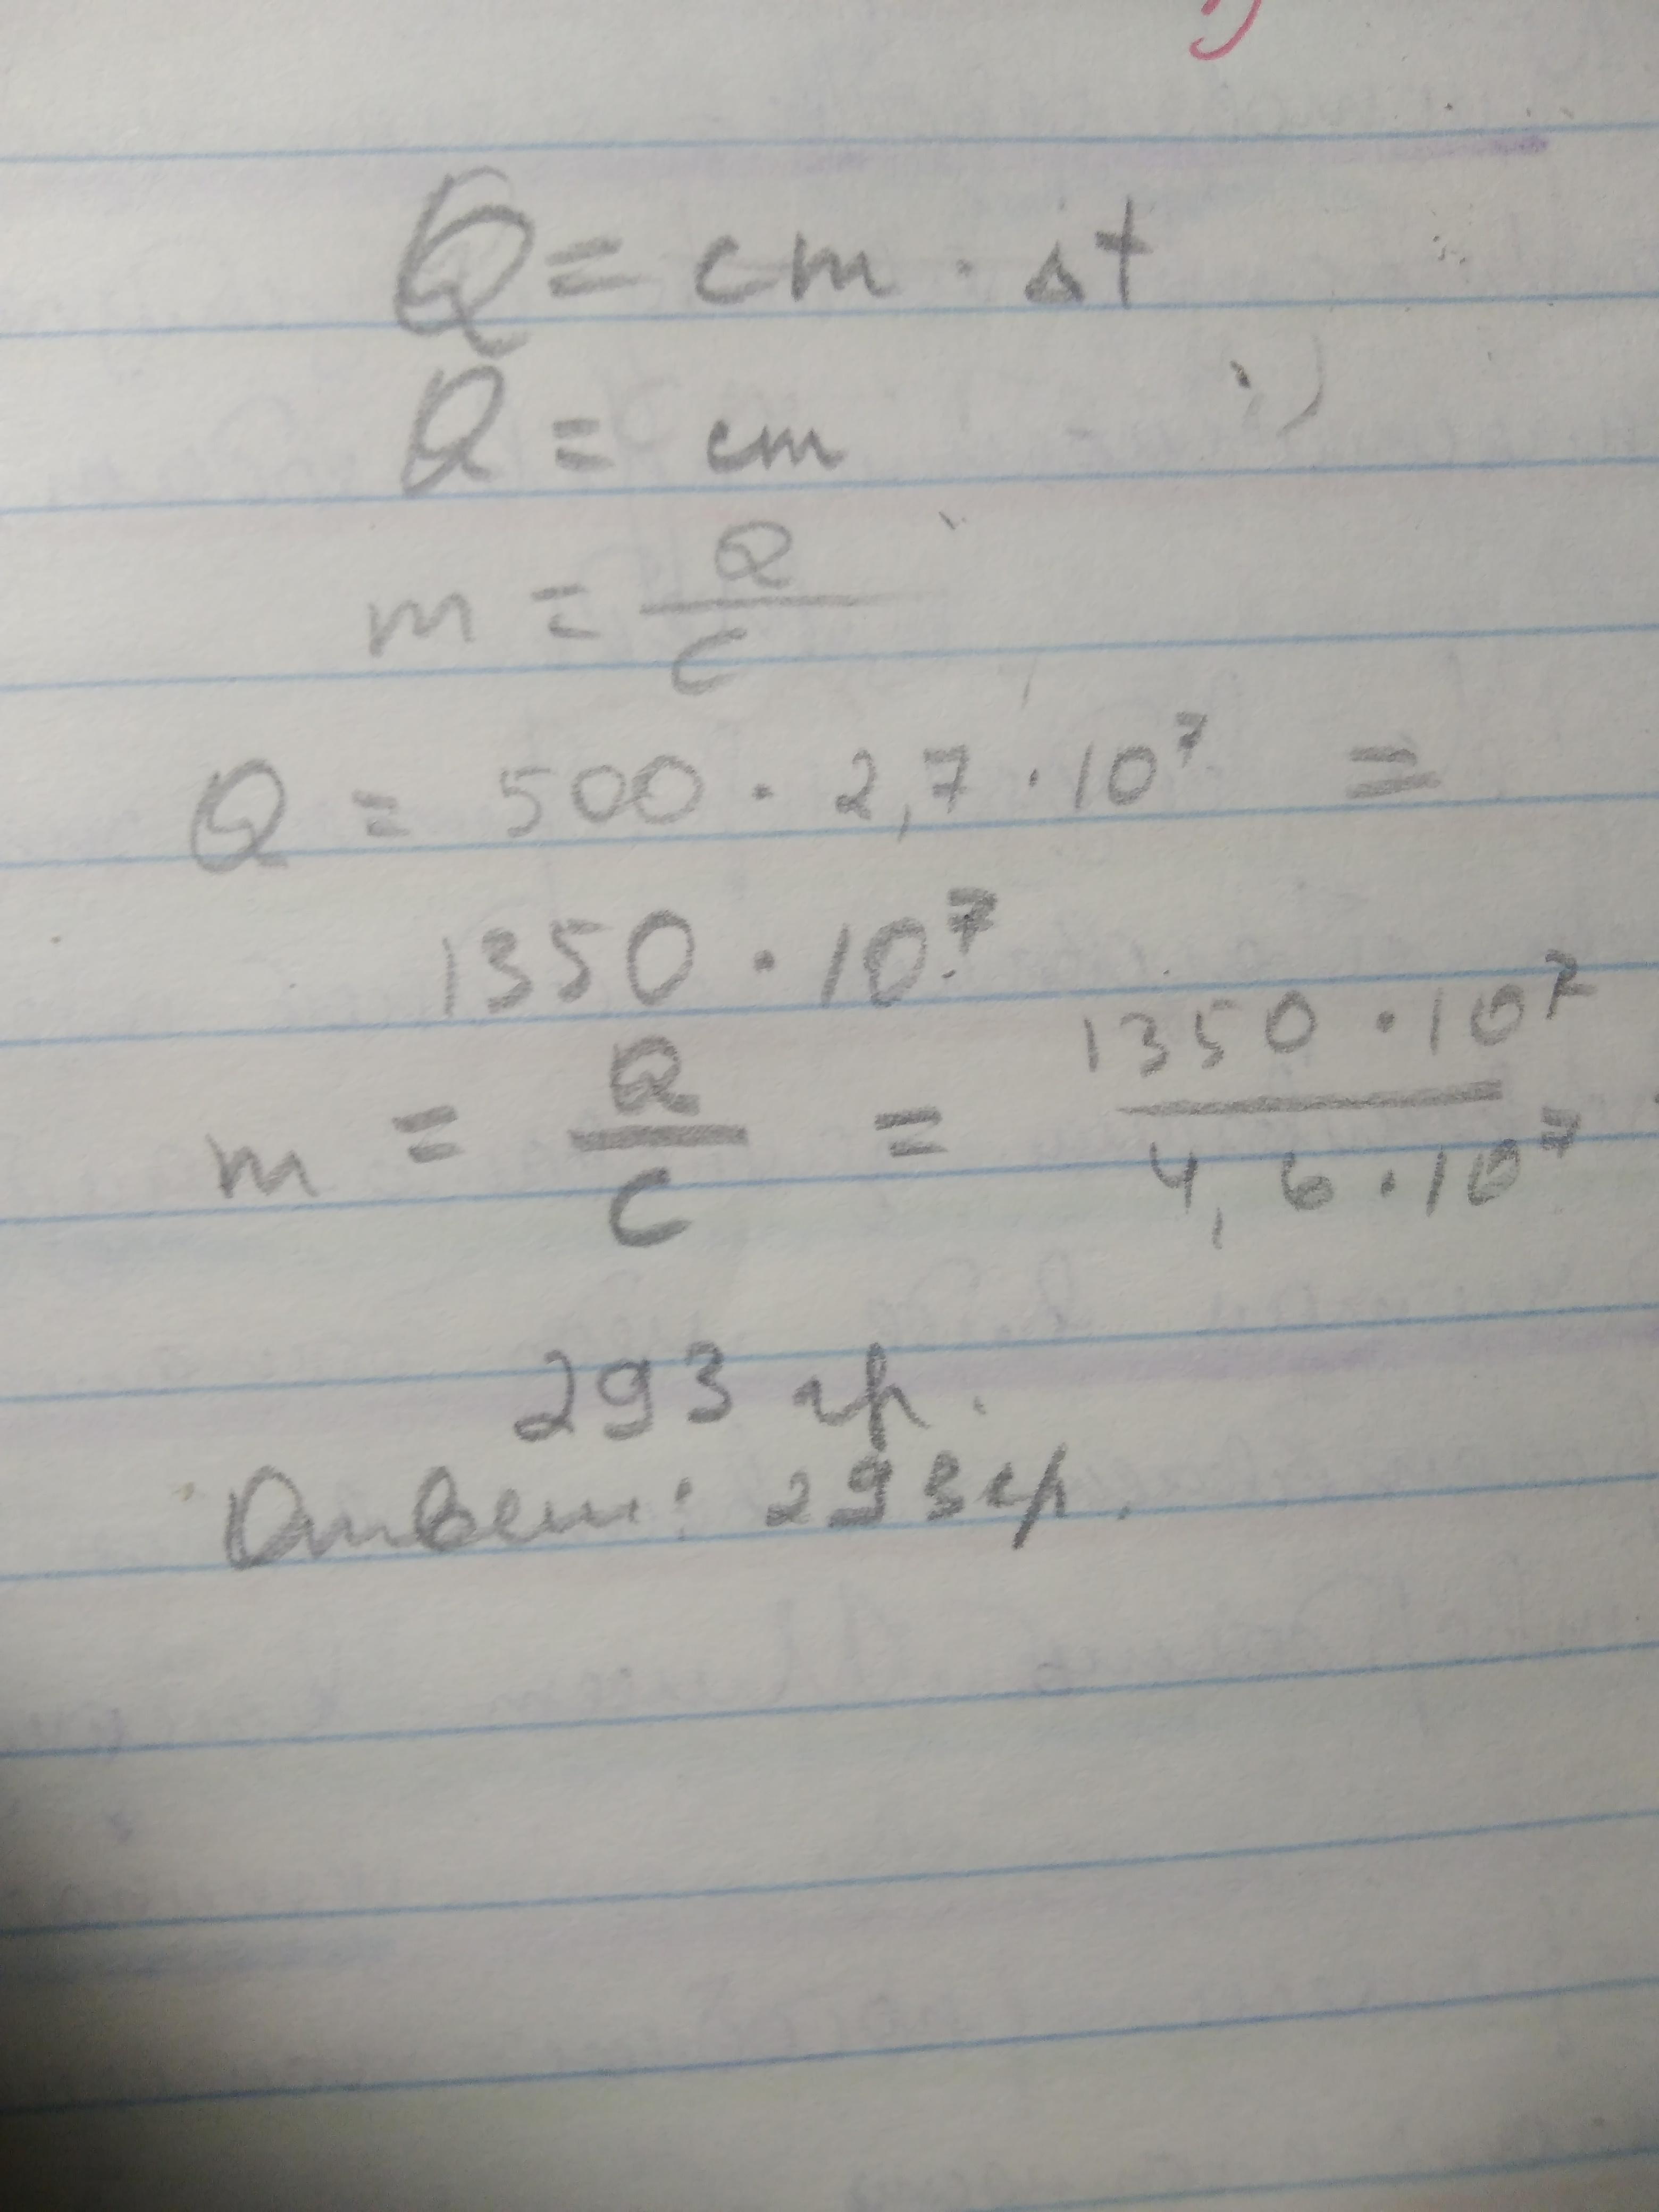 Q = cm · Δt
Q = cm
m = Q/c
Q = 500 · 2,7 · 10⁷ =
1350 · 10⁷
m = Q/c = 1350 · 10⁷ / 4,6 · 10⁷
293 гр.
Ответ: 293 гр.